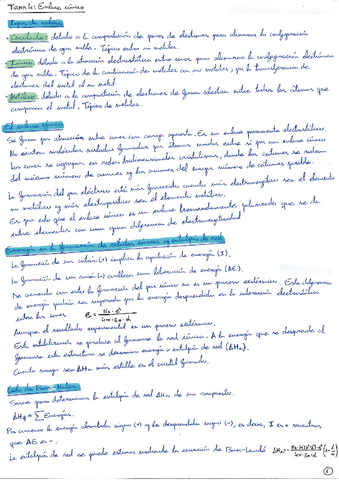 Tema 4: Enlace iónico
Tipos de enlace
Covalente: debido a la compartición de pares de electrones para alcanzar la configuración
electrónica de gas noble. Típico entre no metales.
Iónico: debido a la atracción electrostática entre iones para alcanzar la configuración electrónica
de gas noble. Típico de la combinación de metales con no metales, por la transferencia de
electrones del metal al no metal.
Metálico: debido a la compartición de electrones de forma colectiva entre todos los átomos que
componen el metal. Típico de metales.
El enlace iónico
Se forma por atracción entre iones con carga opuesta. Es un enlace puramente electrostático.
No existen moléculas aisladas formadas por átomos unidos entre sí por un enlace iónico
Los iones se agrupan en redes tridimensionales cristalinas, donde los cationes se rodean
del máximo número de aniones y los aniones del mayor número de cationes posible.
La formación del par iónico está más favorecida cuanto más electronegativo sea el elemento
no metálico y más electropositivo sea el elemento metálico.
Es por ello que el enlace iónico es un enlace que se da
entre elementos con una gran diferencia de electronegatividad
Energía en la formación de sólidos iónicos y entalpía de red
La formación de un catión (+) implica la aportación de energía (I).
La formación de un anión (-) conlleva una liberación de energía (AE).
De acuerdo con esto la formación del par iónico no es un proceso exotérmico. Esta diferencia
de energía podría ser superada por la energía desprendida en la interacción electrostática
entre los iones.
Aunque el resultado experimental es un proceso exotérmico.
Esta estabilización se produce al formarse la red iónica. A la energía que se desprende al
formarse esta estructura se denomina energía o entalpía de red (ΔHred).
Cuanto mayor sea ΔHred más estable es el cristal formado.
Ciclo de Born-Haber
Sirve para determinar la entalpía de red ΔHred de un compuesto.
ΔHf = Σ Energías.
Por convenio la energía absorbida signo (+) y la desprendida signo (-), es decir, I es + mientras
que AE es -.
La entalpía de red se puede estimar mediante la ecuación de Born-Landé
1